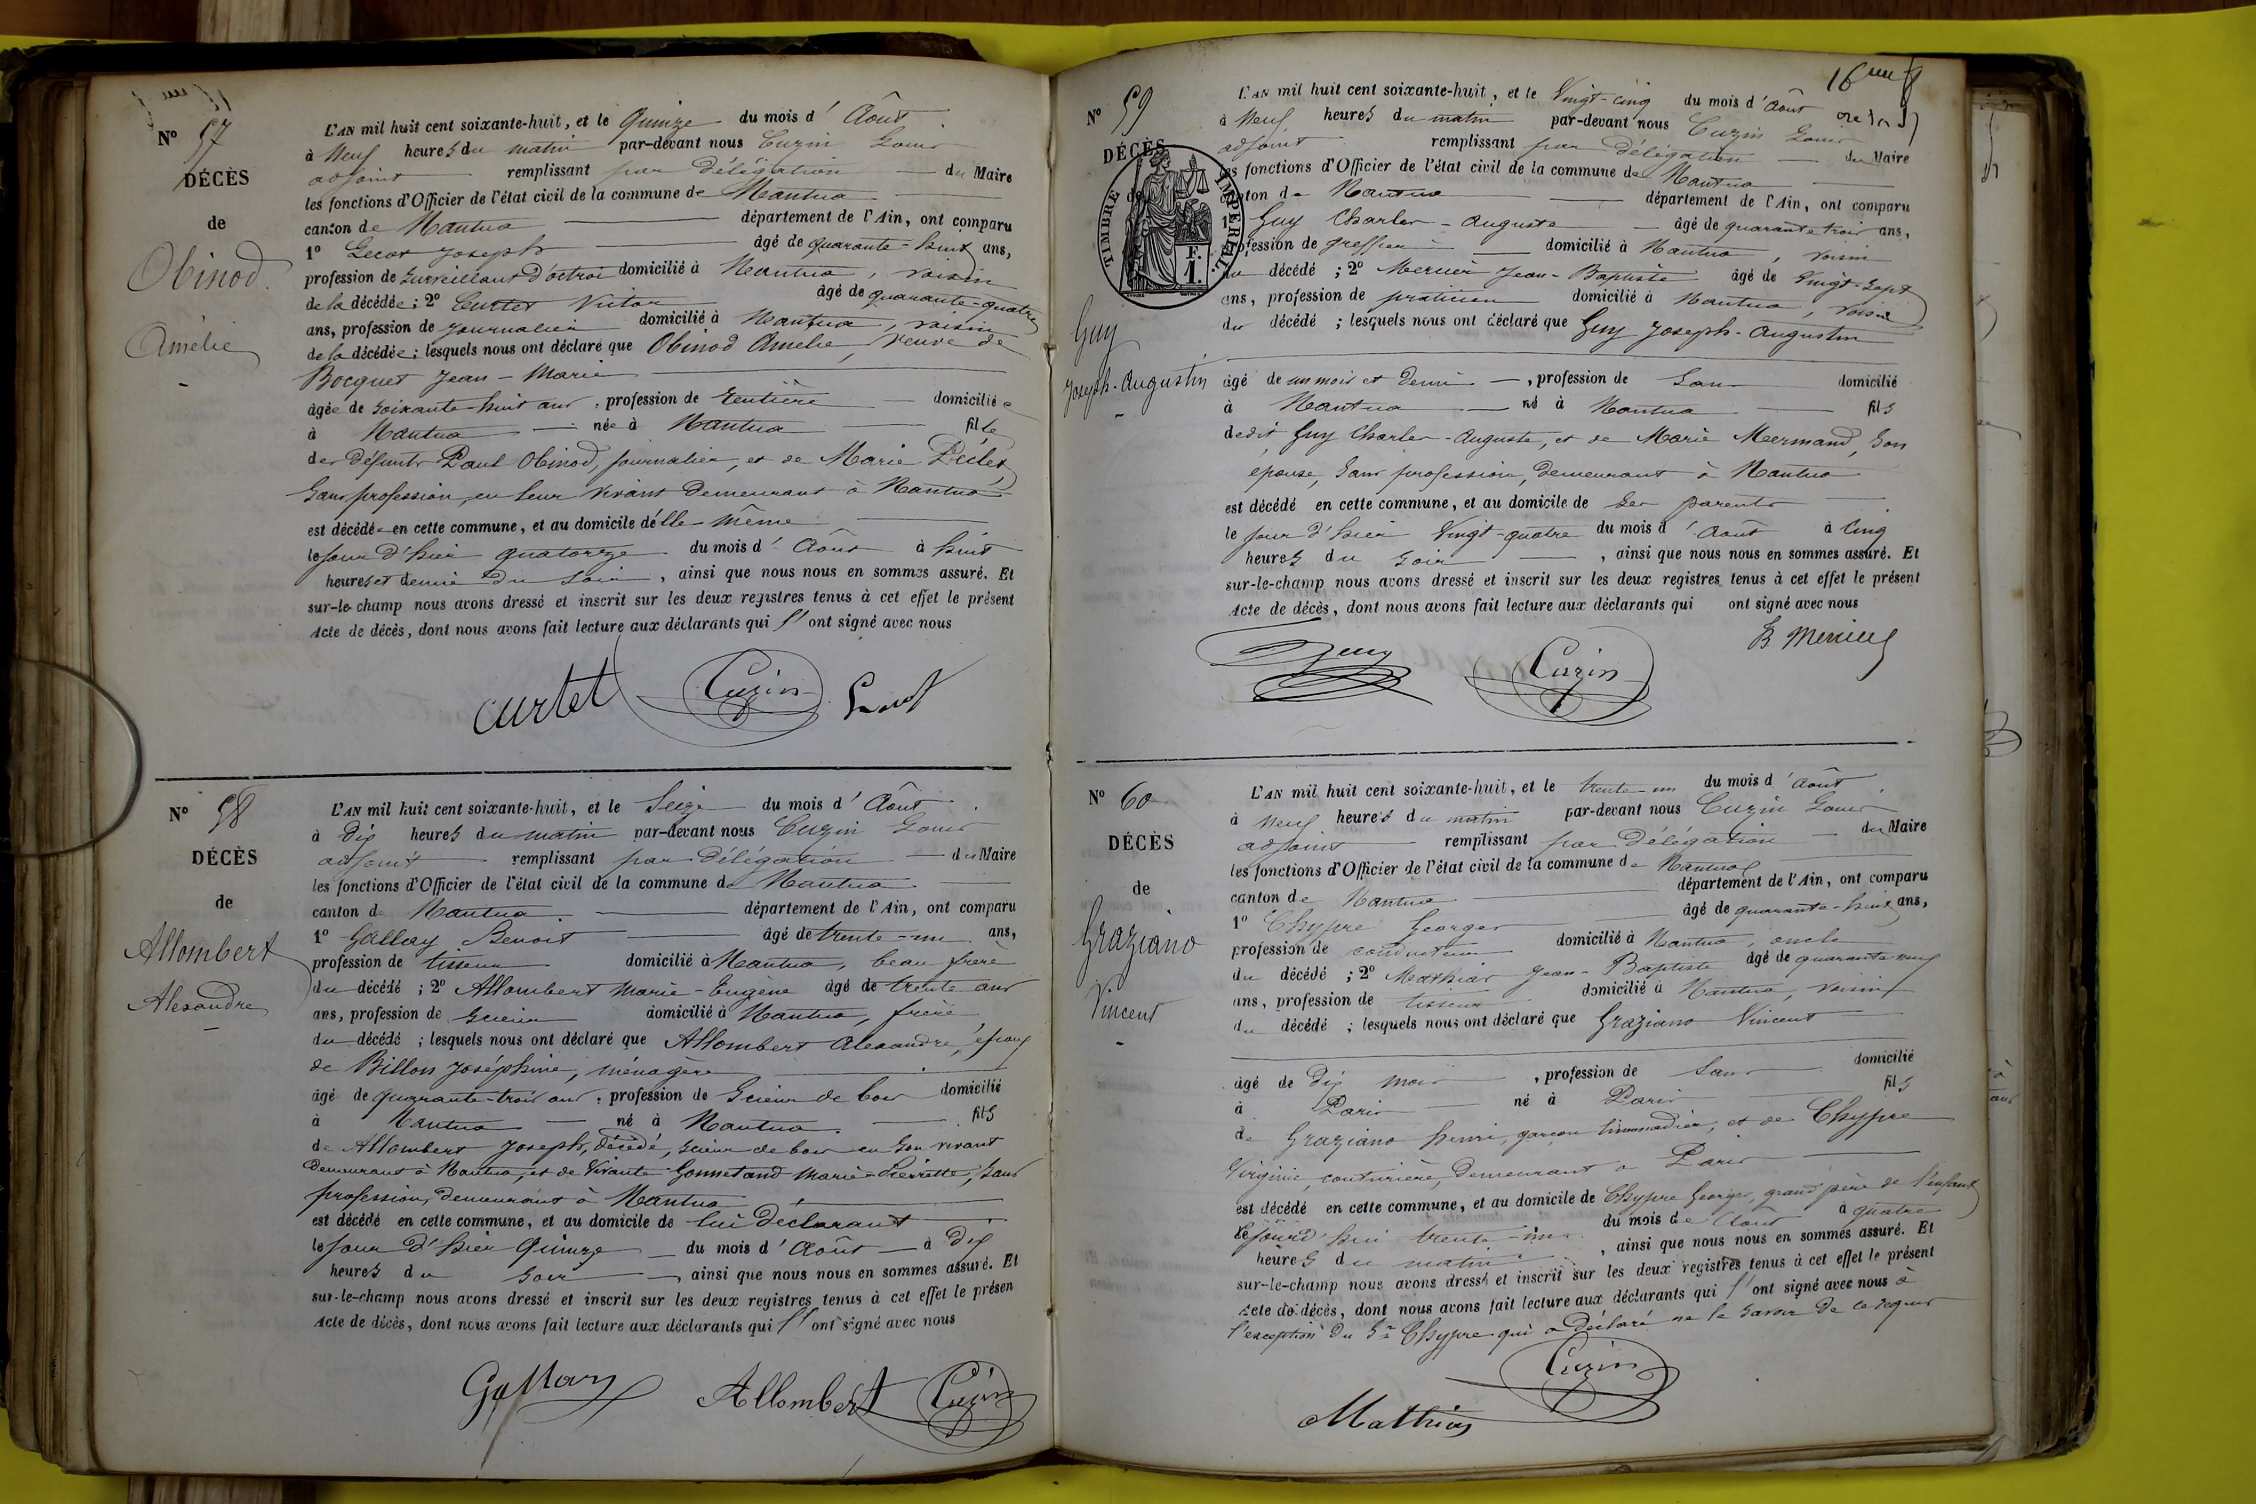 N° 57
DÉCÈS
de
Obinod
Amélie
L'AN mil huit cent soixante-huit, et le Quinze du mois d'Août
à Neuf heures du matin par-devant nous Cuzin Louis
adjoint remplissant par délégation du Maire
les fonctions d'Officier de l'état civil de la commune de Nantua
canton de Nantua département de l'Ain, ont comparu
1° Lecot Joseph âgé de quarante-huit ans,
profession de Surveillant d'octroi domicilié à Nantua, voisin
de la décédée; 2° Curtet Victor âgé de quarante-quatre
ans, profession de Journalier domicilié à Nantua, voisin
de la décédée; lesquels nous ont déclaré que Obinod Amélie, veuve de
Bocquet Jean-Marie
âgée de soixante-huit ans, profession de Rentière domiciliée
à Nantua née à Nantua fille
des défunts Paul Obinod, journalier, et de Marie Péclet,
Sans profession, en leur vivant demeurant à Nantua
est décédée en cette commune, et au domicile d'elle-même
le jour d'hier quatorze du mois d'Août à huit
heures et demie du soir, ainsi que nous nous en sommes assuré. Et
sur-le-champ nous avons dressé et inscrit sur les deux registres tenus à cet effet le présent
Acte de décès, dont nous avons fait lecture aux déclarants qui l'ont signé avec nous
curtet Cuzin Lecot
N° 58
DÉCÈS
de
Allombert
Alexandre
L'AN mil huit cent soixante-huit, et le Seize du mois d'Août
à Dix heures du matin par-devant nous Cuzin Louis
adjoint remplissant par délégation du Maire
les fonctions d'Officier de l'état civil de la commune de Nantua
canton de Nantua département de l'Ain, ont comparu
1° Gallay Benoit âgé de trente-un ans,
profession de tisseur domicilié à Nantua, beau frère
du décédé; 2° Allombert Marie-Eugène âgé de trente ans
ans, profession de Scieur domicilié à Nantua, frère
du décédé; lesquels nous ont déclaré que Allombert Alexandre, époux
de Billon Joséphine, ménagère
âgé de quarante-trois ans, profession de Scieur de bois domicilié
à Nantua né à Nantua fils
de Allombert Joseph, décédé, scieur de bois en son vivant
demeurant à Nantua, et de vivante Gonnetand Marie-Pierrette, sans
profession, demeurant à Nantua
est décédé en cette commune, et au domicile de lui déclarant
le jour d'hier Quinze du mois d'Août à Dix
heures du soir, ainsi que nous nous en sommes assuré. Et
sur-le-champ nous avons dressé et inscrit sur les deux registres tenus à cet effet le présen
Acte de décès, dont nous avons fait lecture aux déclarants qui l'ont signé avec nous
Gallay Allombert Cuzin
16
N° 59
DÉCÈS
de
TIMBRE IMPÉRIAL
1 F.
Guy
Joseph-Augustin
L'AN mil huit cent soixante-huit, et le Vingt-cinq du mois d'Août
à Neuf heures du matin par-devant nous Cuzin Louis
adjoint remplissant par délégation du Maire
les fonctions d'Officier de l'état civil de la commune de Nantua
canton de Nantua département de l'Ain, ont comparu
1° Guy Charles-Auguste âgé de quarante trois ans,
profession de greffier domicilié à Nantua, voisin
du décédé; 2° Mercier Jean-Baptiste âgé de Vingt-Sept
ans, profession de praticien domicilié à Nantua, voisin
du décédé; lesquels nous ont déclaré que Guy Joseph-Augustin
âgé de un mois et demi, profession de Sans domicilié
à Nantua né à Nantua fils
dedit Guy Charles-Auguste, et de Marie Meermand, son
épouse, sans profession, demeurant à Nantua
est décédé en cette commune, et au domicile de ses parents
le jour d'hier Vingt-quatre du mois d'Août à Cinq
heures du soir, ainsi que nous nous en sommes assuré. Et
sur-le-champ nous avons dressé et inscrit sur les deux registres tenus à cet effet le présent
Acte de décès, dont nous avons fait lecture aux déclarants qui ont signé avec nous
Guy Cuzin B Mercier
N° 60
DÉCÈS
de
Graziano
Vincent
L'AN mil huit cent soixante-huit, et le trente-un du mois d'Août
à Neuf heures du matin par-devant nous Cuzin Louis
adjoint remplissant par délégation du Maire
les fonctions d'Officier de l'état civil de la commune de Nantua
canton de Nantua département de l'Ain, ont comparu
1° Chypre Georges âgé de quarante-huit ans,
profession de conducteur domicilié à Nantua, oncle
du décédé; 2° Mathias Jean-Baptiste âgé de quarante neuf
ans, profession de tisseur domicilié à Nantua, voisin
du décédé; lesquels nous ont déclaré que Graziano Vincent
âgé de Dix mois, profession de Sans domicilié
à Paris né à Paris fils
de Graziano henri, garçon limonadier, et de Chypre
Virginie, couturière, demeurant à Paris
est décédé en cette commune, et au domicile de Chypre Georges, grand père de l'enfant
le jourd'hui trente-un du mois de Août à quatre
heures du matin, ainsi que nous nous en sommes assuré. Et
sur-le-champ nous avons dressé et inscrit sur les deux registres tenus à cet effet le présent
Acte de décès, dont nous avons fait lecture aux déclarants qui l'ont signé avec nous à
l'exception du Sr Chypre qui a déclaré ne le savoir de ce requis
Cuzin
Mathias